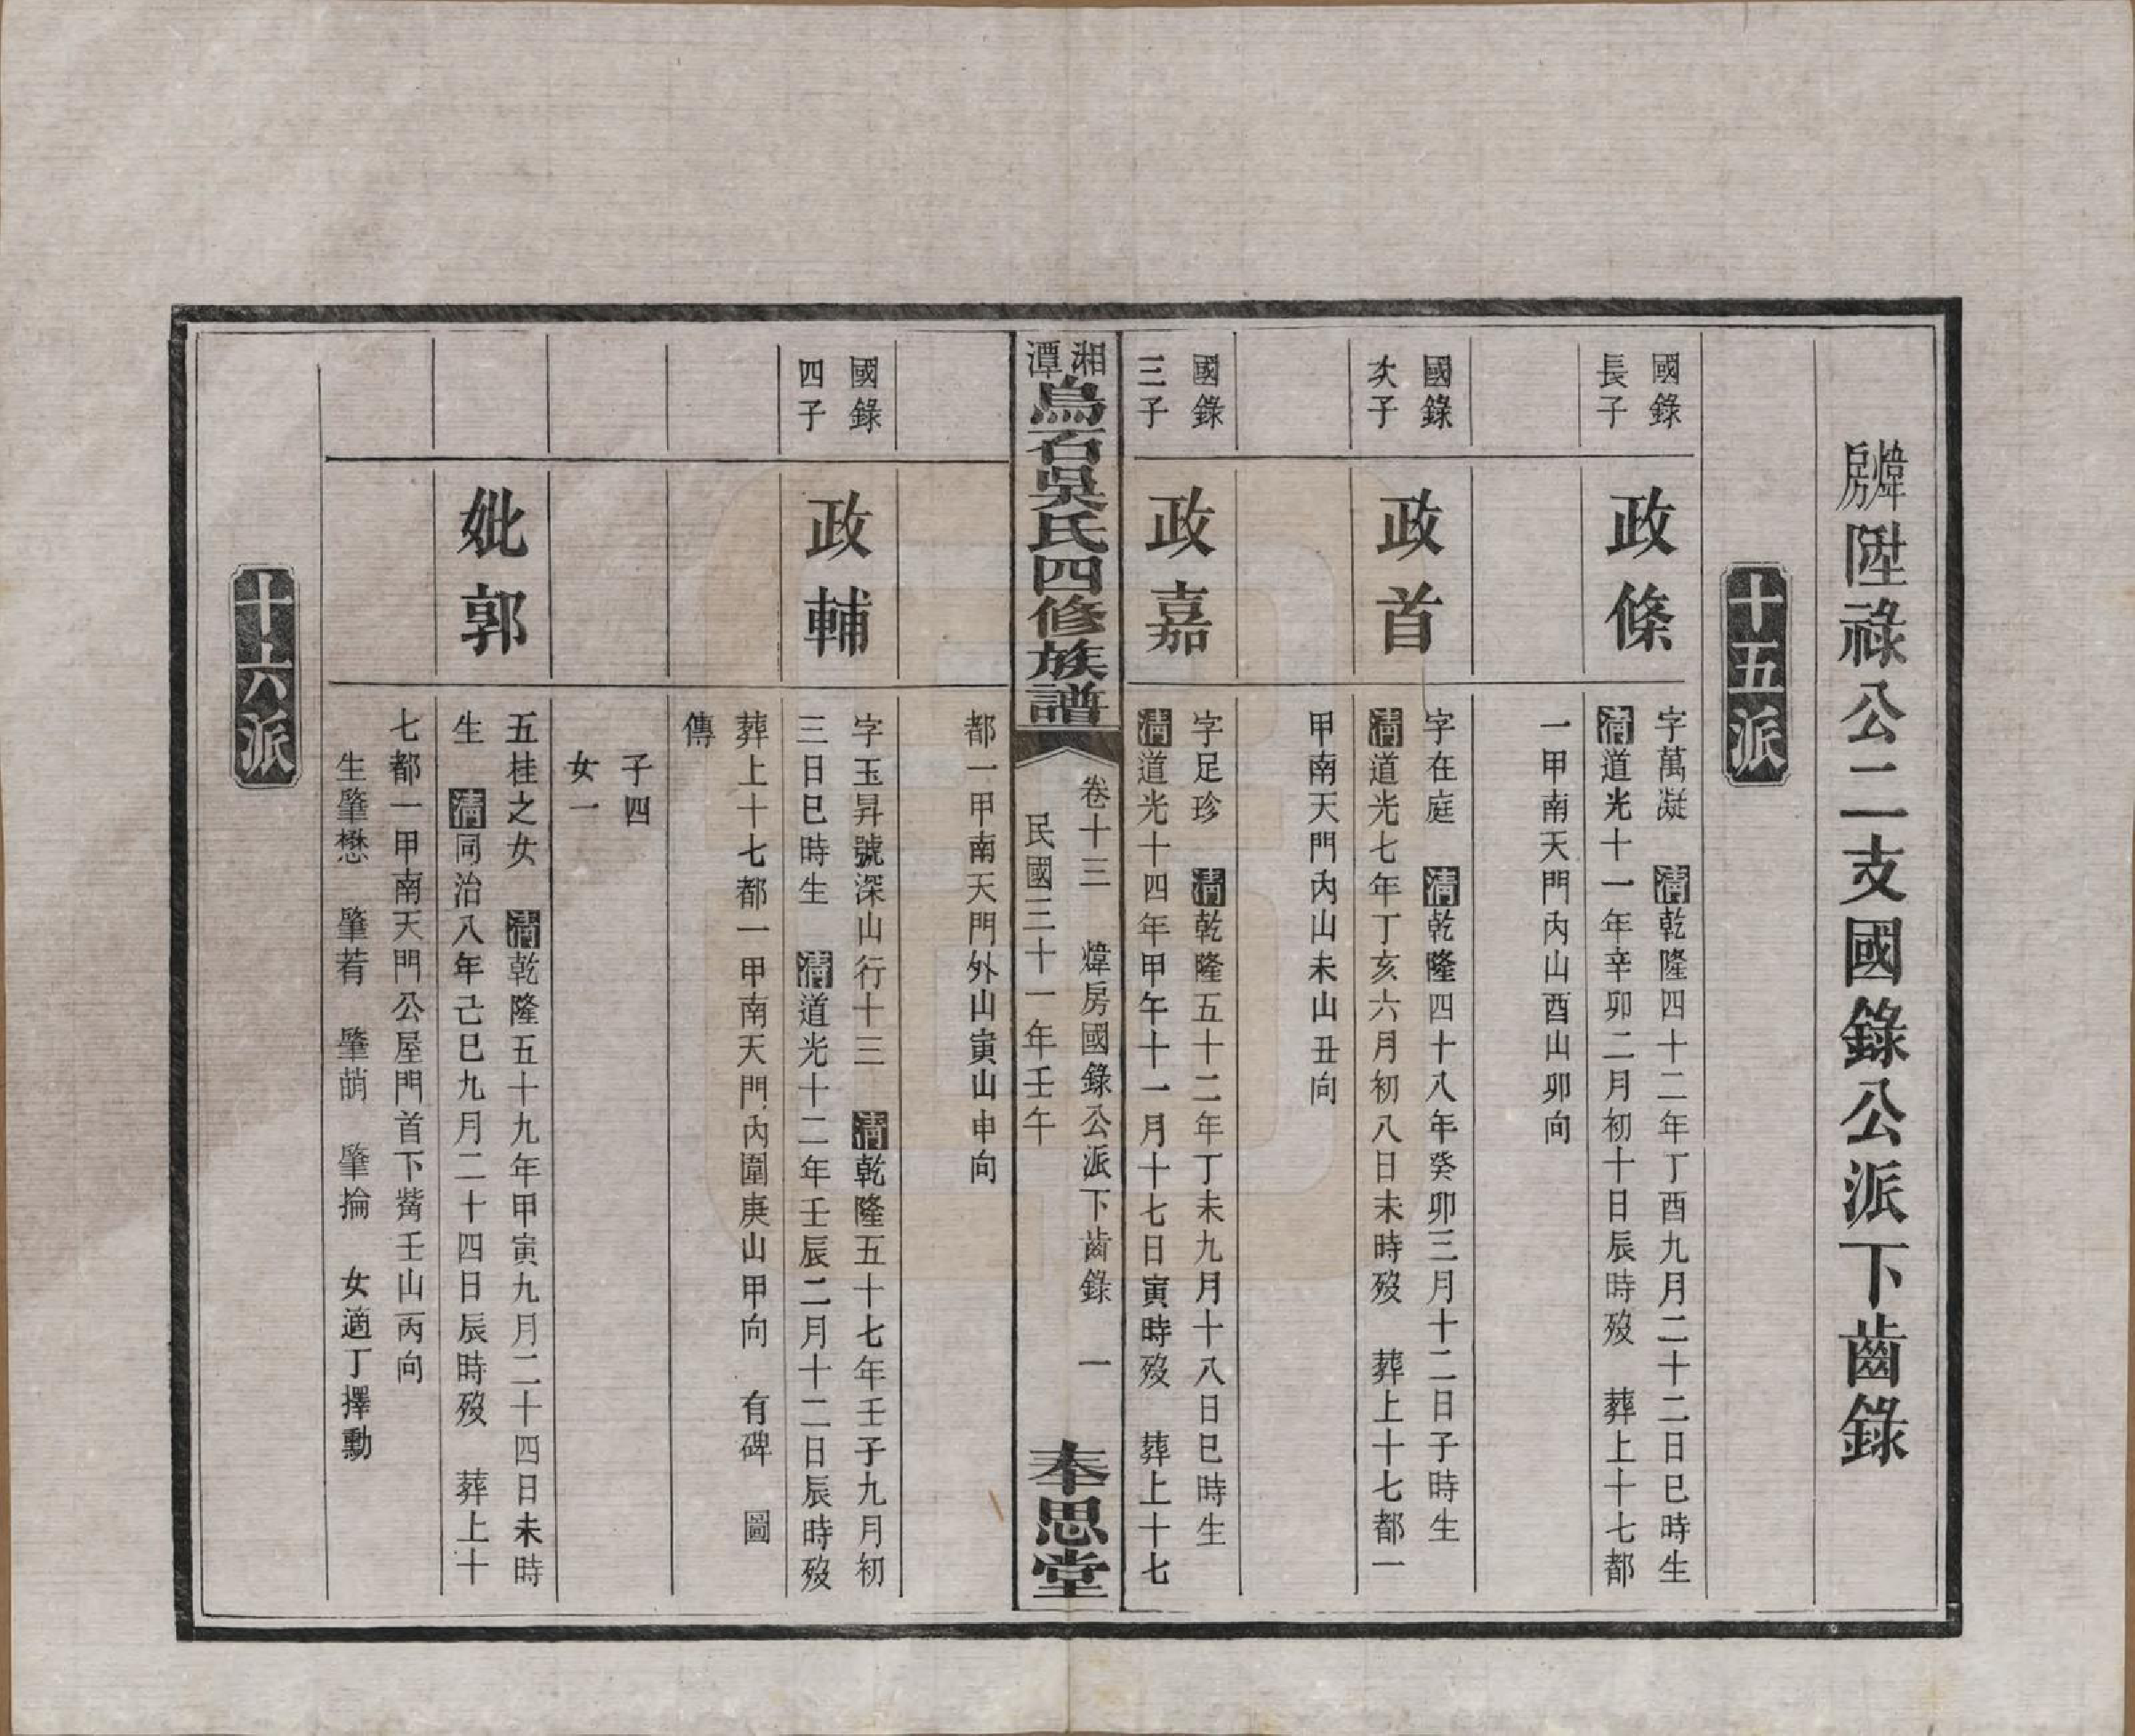 煒房陞祿公二支國錄公派下齒錄
十五派
國錄
長子
政條
字萬凝 清乾隆四十二年丁酉九月二十二日巳時生
清道光十一年辛卯二月初十日辰時歿 葬上十七都
一甲南天門內山酉山卯向
國錄
次子
政首
字在庭 清乾隆四十八年癸卯三月十二日子時生
清道光七年丁亥六月初八日未時歿 葬上十七都一
甲南天門內山未山丑向
國錄
三子
政嘉
字足珍 清乾隆五十二年丁未九月十八日巳時生
清道光十四年甲午十一月十七日寅時歿 葬上十七
湘潭烏石吳氏四修族譜
卷十三 煒房國錄公派下齒錄 一
民國三十一年壬午
奉思堂
都一甲南天門外山寅山申向
國錄
四子
政輔
字玉昇號深山行十三 清乾隆五十七年壬子九月初
三日巳時生 清道光十二年壬辰二月十二日辰時歿
葬上十七都一甲南天門內圍庚山甲向 有碑 圖
傳
子四
女一
妣郭
五桂之女 清乾隆五十九年甲寅九月二十四日未時
生 清同治八年己巳九月二十四日辰時歿 葬上十
七都一甲南天門公屋門首下觜壬山丙向
生肇懋 肇若 肇萷 肇掄 女適丁擇勳
十六派